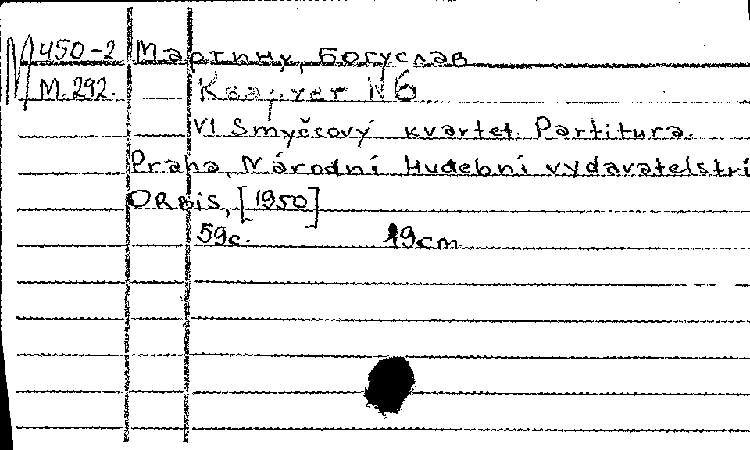 М 450-2 Мартину, Богуслав
М-292. Квартет №6
VI Smyčcový kvartet. Partitura.
Praha, Národní Hudební vydavatelstrí
ORBIS, [1950]
59с. 19cm